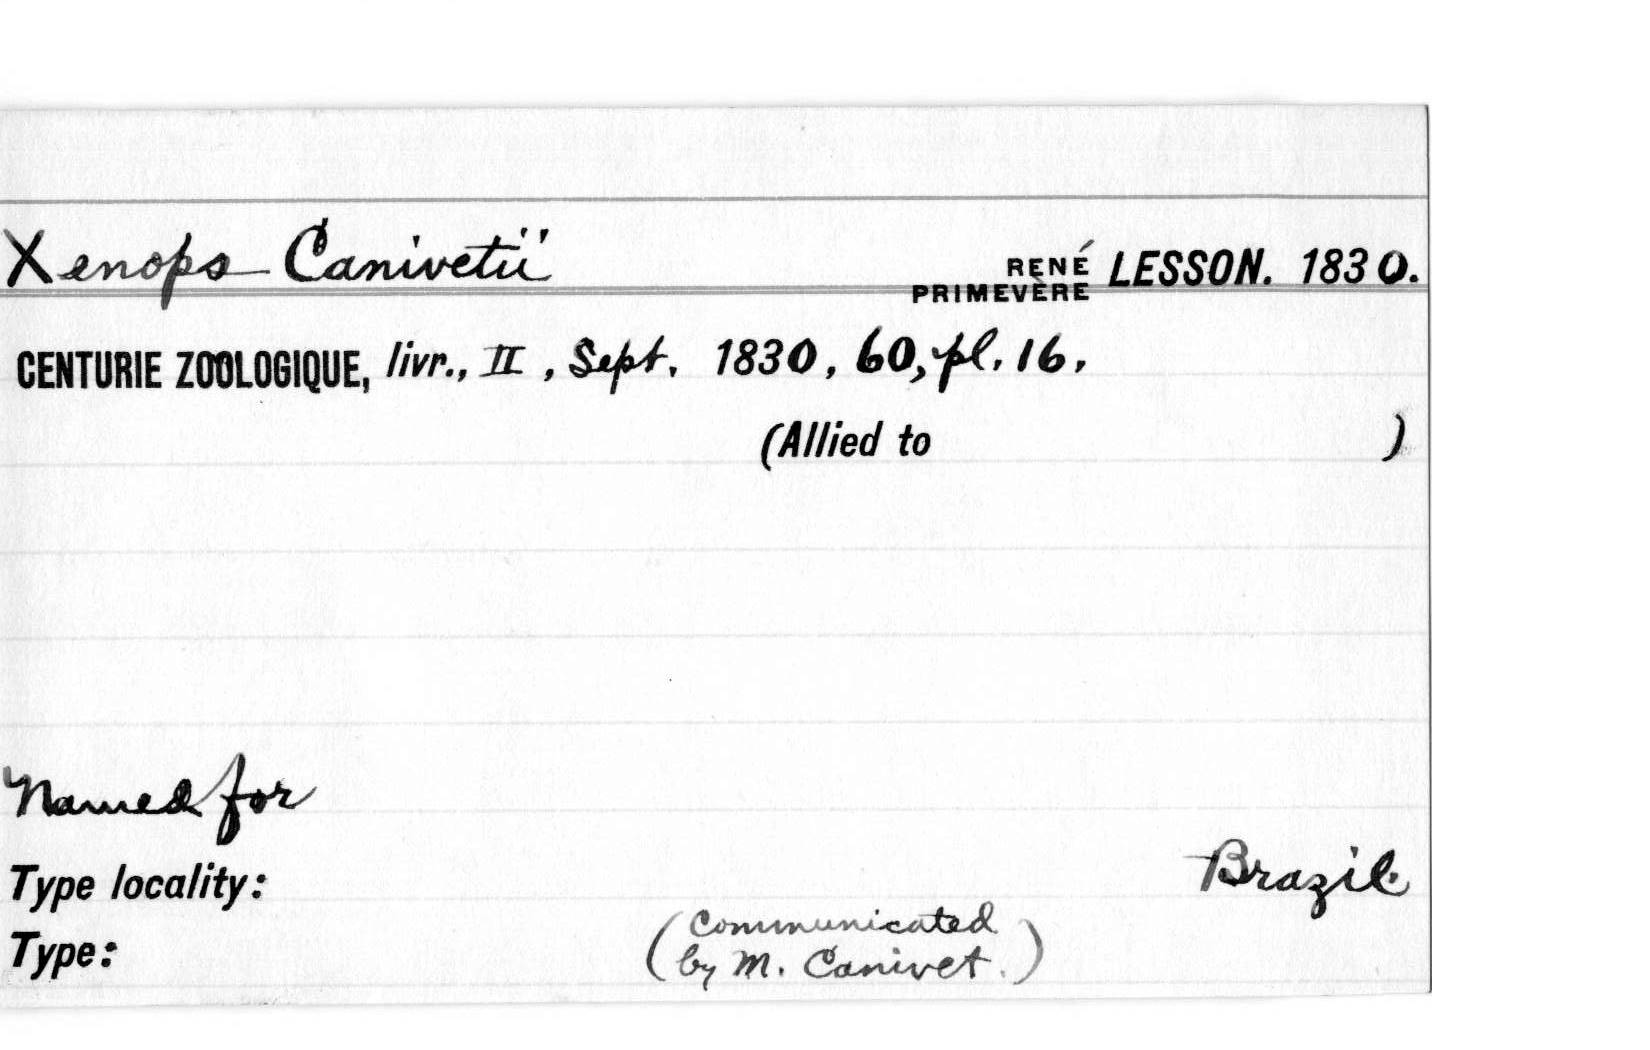 Xenops Canivetii RENÉ PRIMEVÈRE LESSON. 1830.
CENTURIE ZOOLOGIQUE, livr., II, Sept. 1830, 60, pl. 16.
(Allied to )
Named for
Type locality: Brazil.
Type: (Communicated
by M. Canivet.)